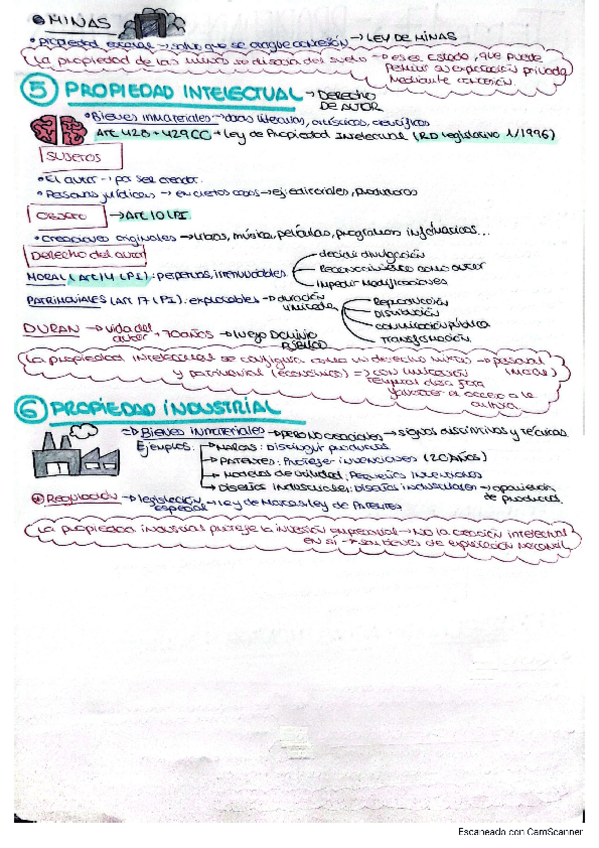 MINAS
• Propiedad estatal → salvo que se otorgue concesión → LEY DE MINAS
La propiedad de las minas se disocia del suelo → es el Estado, que puede
permitir su explotación privada
mediante concesión.
5 PROPIEDAD INTELECTUAL → DERECHO
DE AUTOR
• Bienes inmateriales → obras literarias, artísticas, científicas
Art 428 + 429 CC + Ley de Propiedad Intelectual (RD Legislativo 1/1996)
SUJETOS
• El autor → por ser creador.
• Personas jurídicas → en ciertos casos → ej: editoriales, productoras
OBJETO → Art 10 LPI
• Creaciones originales → libros, música, películas, programas informáticos...
Derecho del autor
MORAL (Art 14 LPI): perpetuas, irrenunciables
decidir divulgación
Reconocimiento como autor
Impedir modificaciones
PATRIMONIALES (Art 17 LPI): explotables → duración
limitada
Reproducción
Distribución
comunicación pública
Transformación.
DURAN → vida del
autor + 70 años → luego Dominio
PÚBLICO
La propiedad intelectual se configura como un derecho mixto → personal (moral)
y patrimonial (económico) => con limitación
temporal clara para
favorecer al acceso a la
cultura
6 PROPIEDAD INDUSTRIAL
=> Bienes inmateriales → pero no creaciones → signos distintivos y técnicas
Ejemplos: → MARCAS: Distinguir productos
→ PATENTES: Proteger invenciones (20 AÑOS)
→ Modelos de utilidad: Pequeñas invenciones
→ Diseños industriales: Diseños industriales → apariencia
de productos
Regulación → legislación
especial → Ley de Marcas, Ley de PATENTES
La propiedad industrial protege la inversión empresarial → No la creación intelectual
en sí → son bienes de explotación mercantil
Escaneado con CamScanner